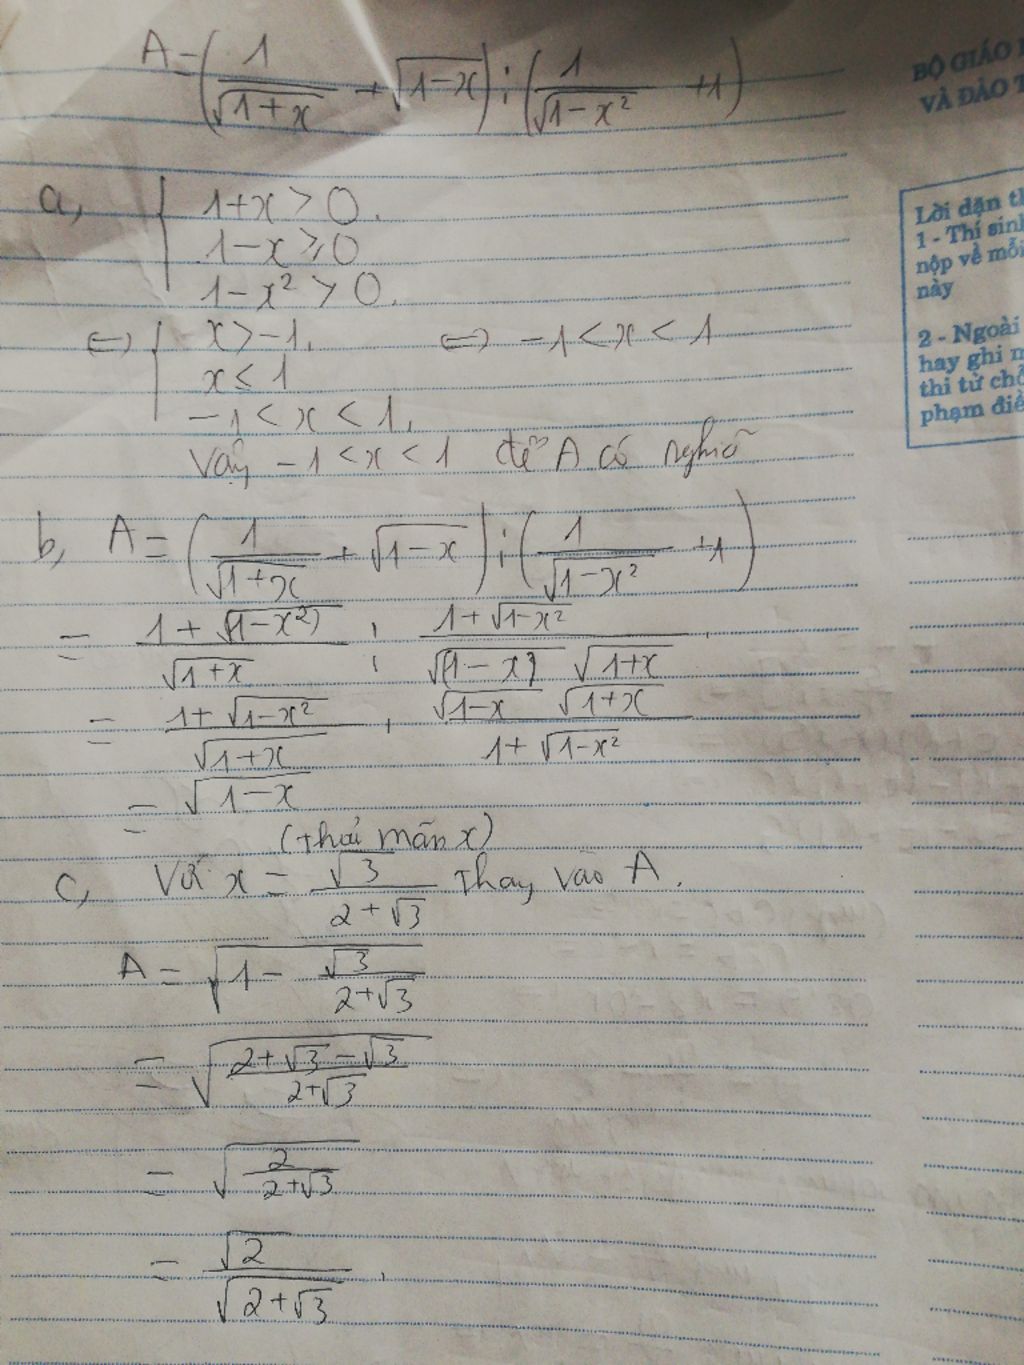 A = (1/√(1+x) + √(1-x)) : (1/√(1-x²) + 1)
BỘ GIÁO
VÀ ĐÀO T
a, { 1+x > 0.
1-x ≥ 0
1-x² > 0.
⇔ { x > -1. ⇔ -1 < x < 1
x ≤ 1
-1 < x < 1.
Vậy -1 < x < 1 để A có nghĩa
Lời dặn th
1 - Thí sinh
nộp về mỗi
này
2 - Ngoài
hay ghi
thi từ chố
phạm điề
b, A = (1/√(1+x) + √(1-x)) : (1/√(1-x²) + 1)
= (1+√(1-x²))/√(1+x) : (1+√(1-x²))/(√(1-x) √(1+x))
= (1+√(1-x²))/√(1+x) . (√(1-x) √(1+x))/(1+√(1-x²))
= √(1-x)
(thỏa mãn x)
c, Với x = √3/(2+√3) Thay vào A.
A = √(1 - √3/(2+√3))
= √((2+√3-√3)/(2+√3))
= √(2/(2+√3))
= √2/√(2+√3).